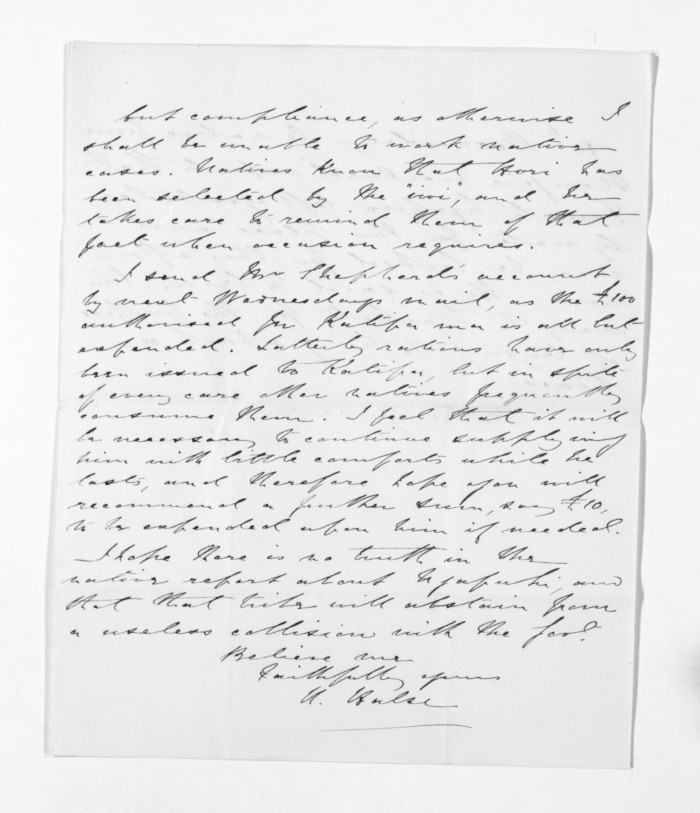 but compliance, as otherwise I
shall be unable to work native
cases. Natives know that Hori has
been selected by the "iwi", and he
takes care to remind them of that
fact when occasion requires.
I send Mr Shepherd's account
by next Wednesdays mail, as the £100
authorised for Katipa ma is all but
expended. Latterly rations have only
been issued to Katipa, but in spite
of every care other natives frequently
consume them. I feel that it will
be necessary to continue supplying
him with little comforts while he
lasts, and therefore hope you will
recommend a further sum, say £10,
to be expended upon him if needed.
I hope there is no truth in the
native report about Ngapuhi, and
that that tribe will abstain from
a useless collision with the Govt.
Believe me
Faithfully yours
H. Halse